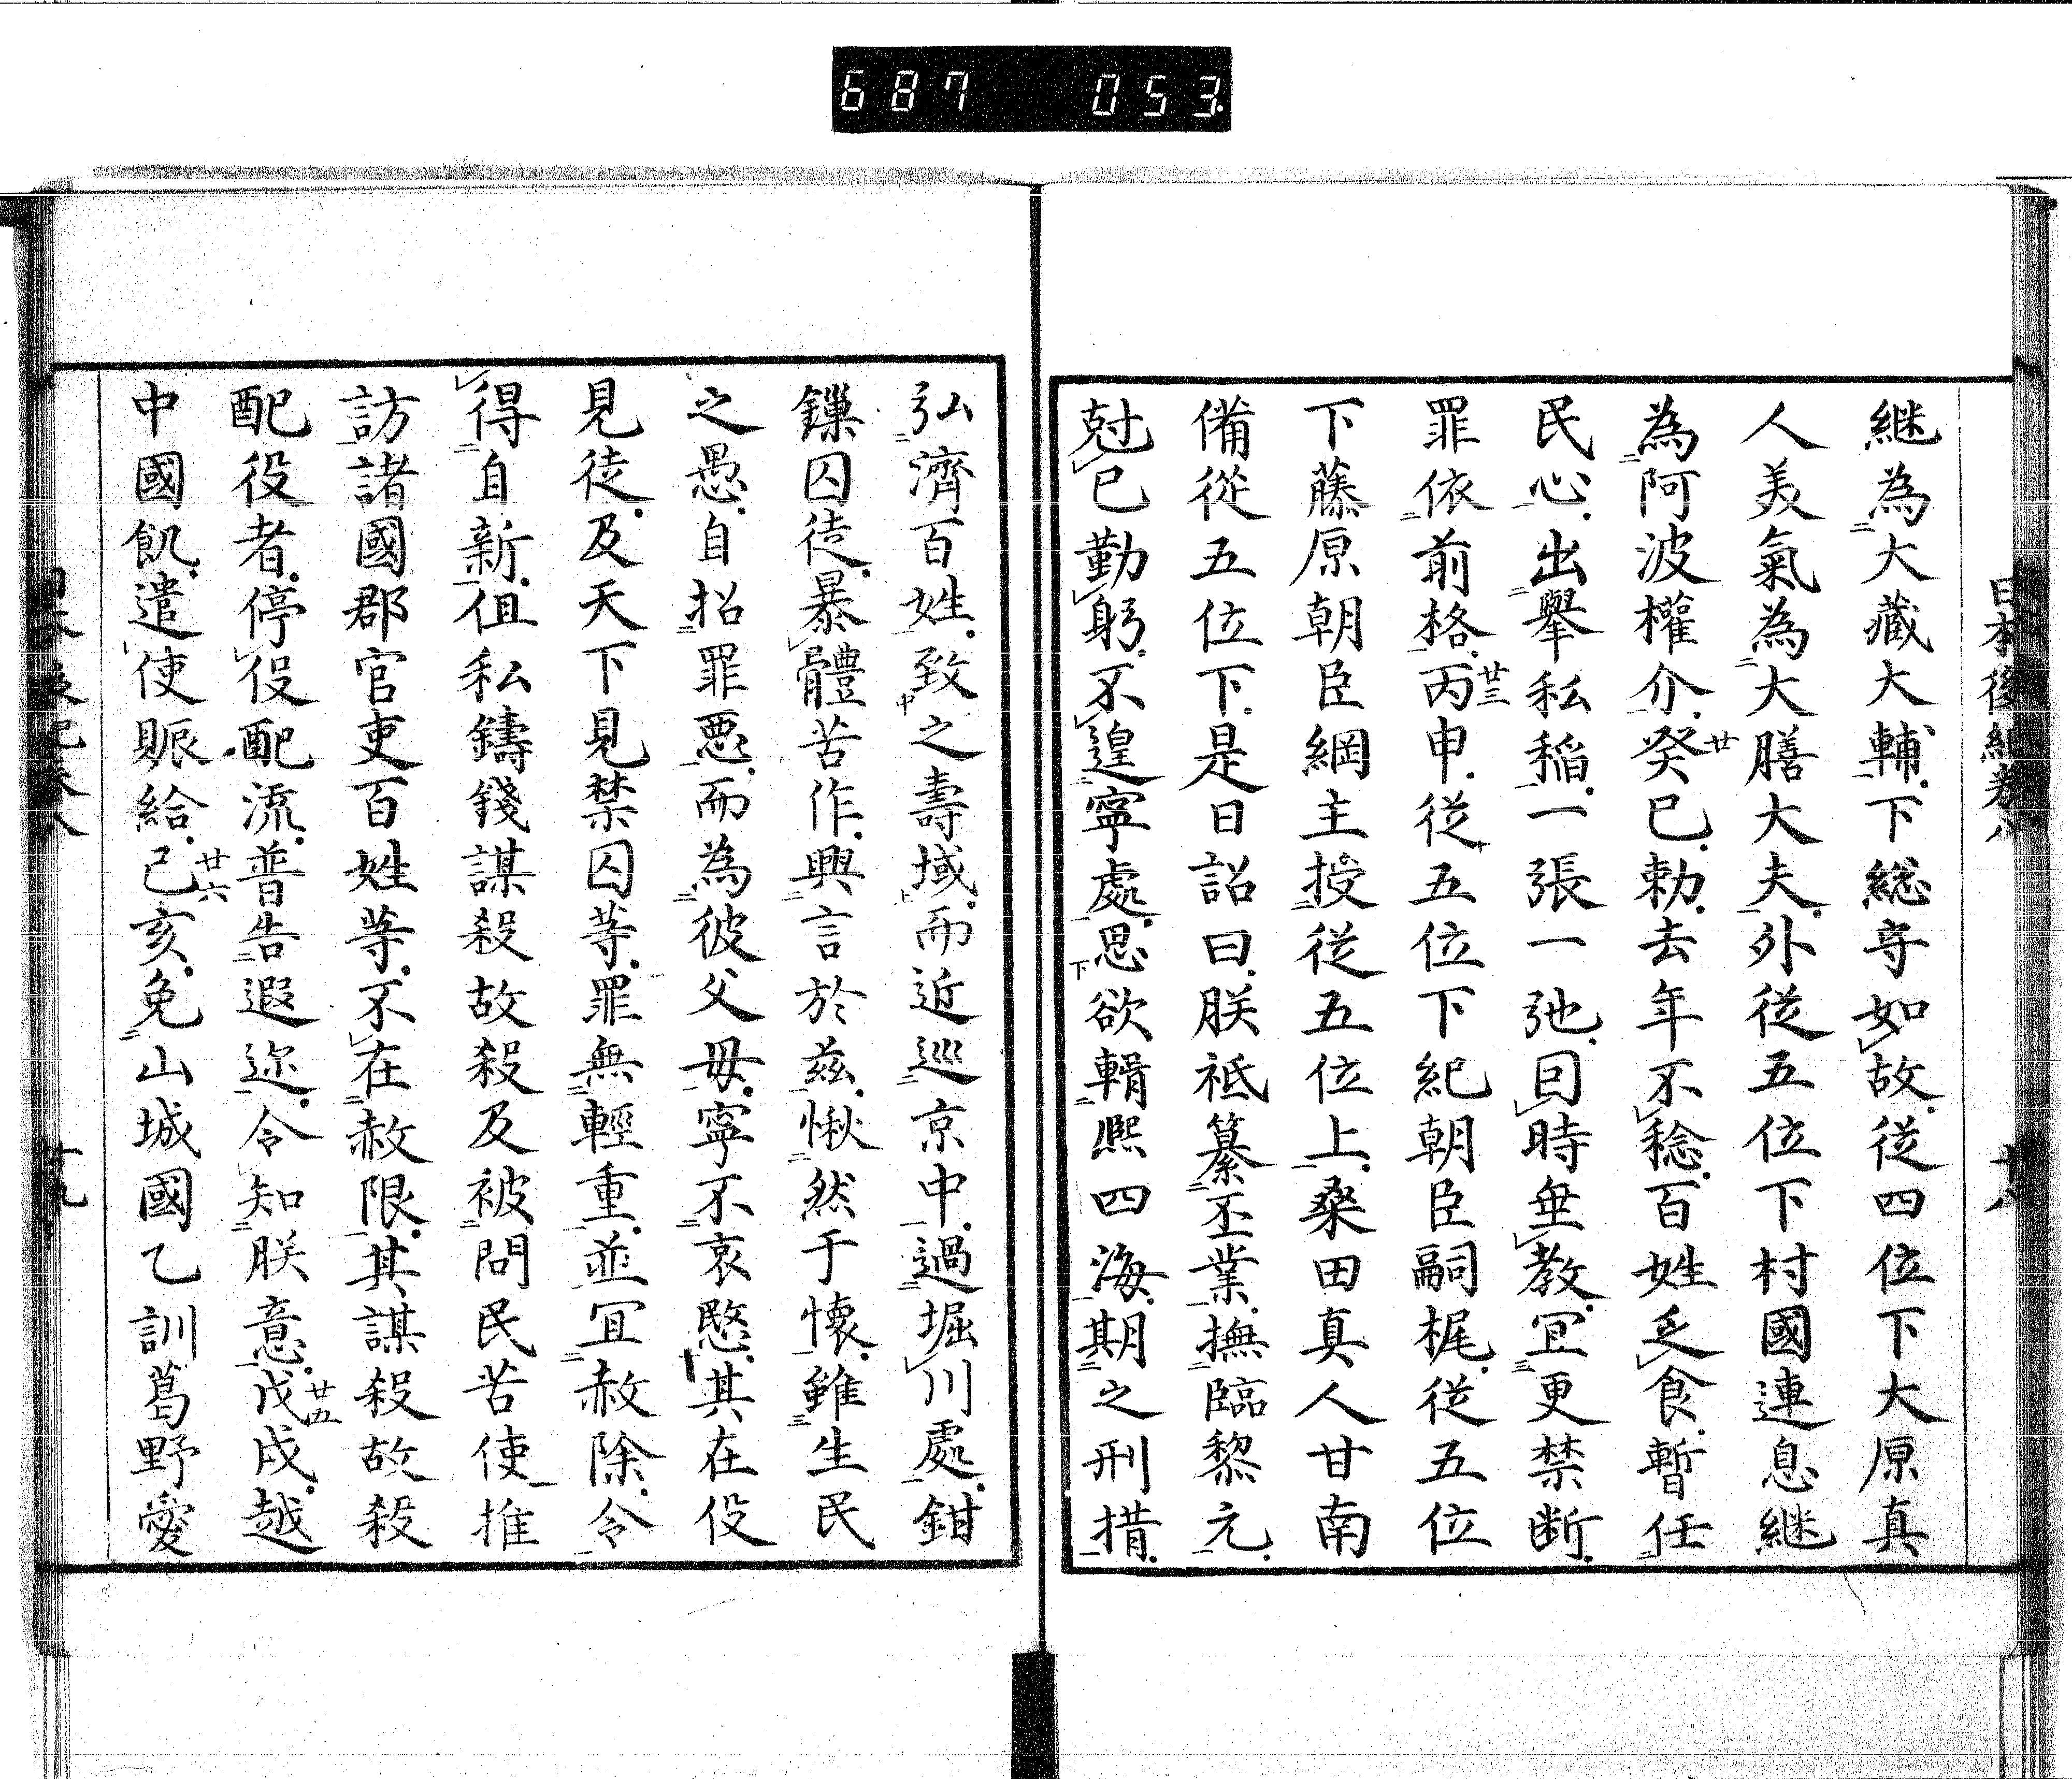 687 053
日本後紀卷八
継為大藏大輔下総守如故従四位下大原真
人美氣為大膳大夫外従五位下村國連息継
為阿波權介癸巳勅去年不稔百姓乏食暫任
廿
民心出舉私稲一張一弛曰時垂教冝更禁断
罪依前格丙申従五位下紀朝臣嗣梶従五位
廿三
下藤原朝臣綱主授従五位上桑田真人甘南
備從五位下是日詔曰朕祗纂丕業撫臨黎元
尅已勤躬不遑寧處思欲輯熈四海期之刑措
弘濟百姓致之壽域而近巡京中過堀川處鉗
鏁囚徒暴體苦作興言於兹愀然于懐雖生民
之愚自招罪悪而為彼父母寧不哀愍其在役
見徒及天下見禁囚等罪無輕重並冝赦除令
得自新但私鑄錢謀殺故殺及被問民苦使推
訪諸國郡官吏百姓等不在赦限其謀殺故殺
配役者停役配流普告遐迩令知朕意戊戌越
廿五
中國飢遣使賑給己亥免山城國乙訓葛野愛
廿六
廿九